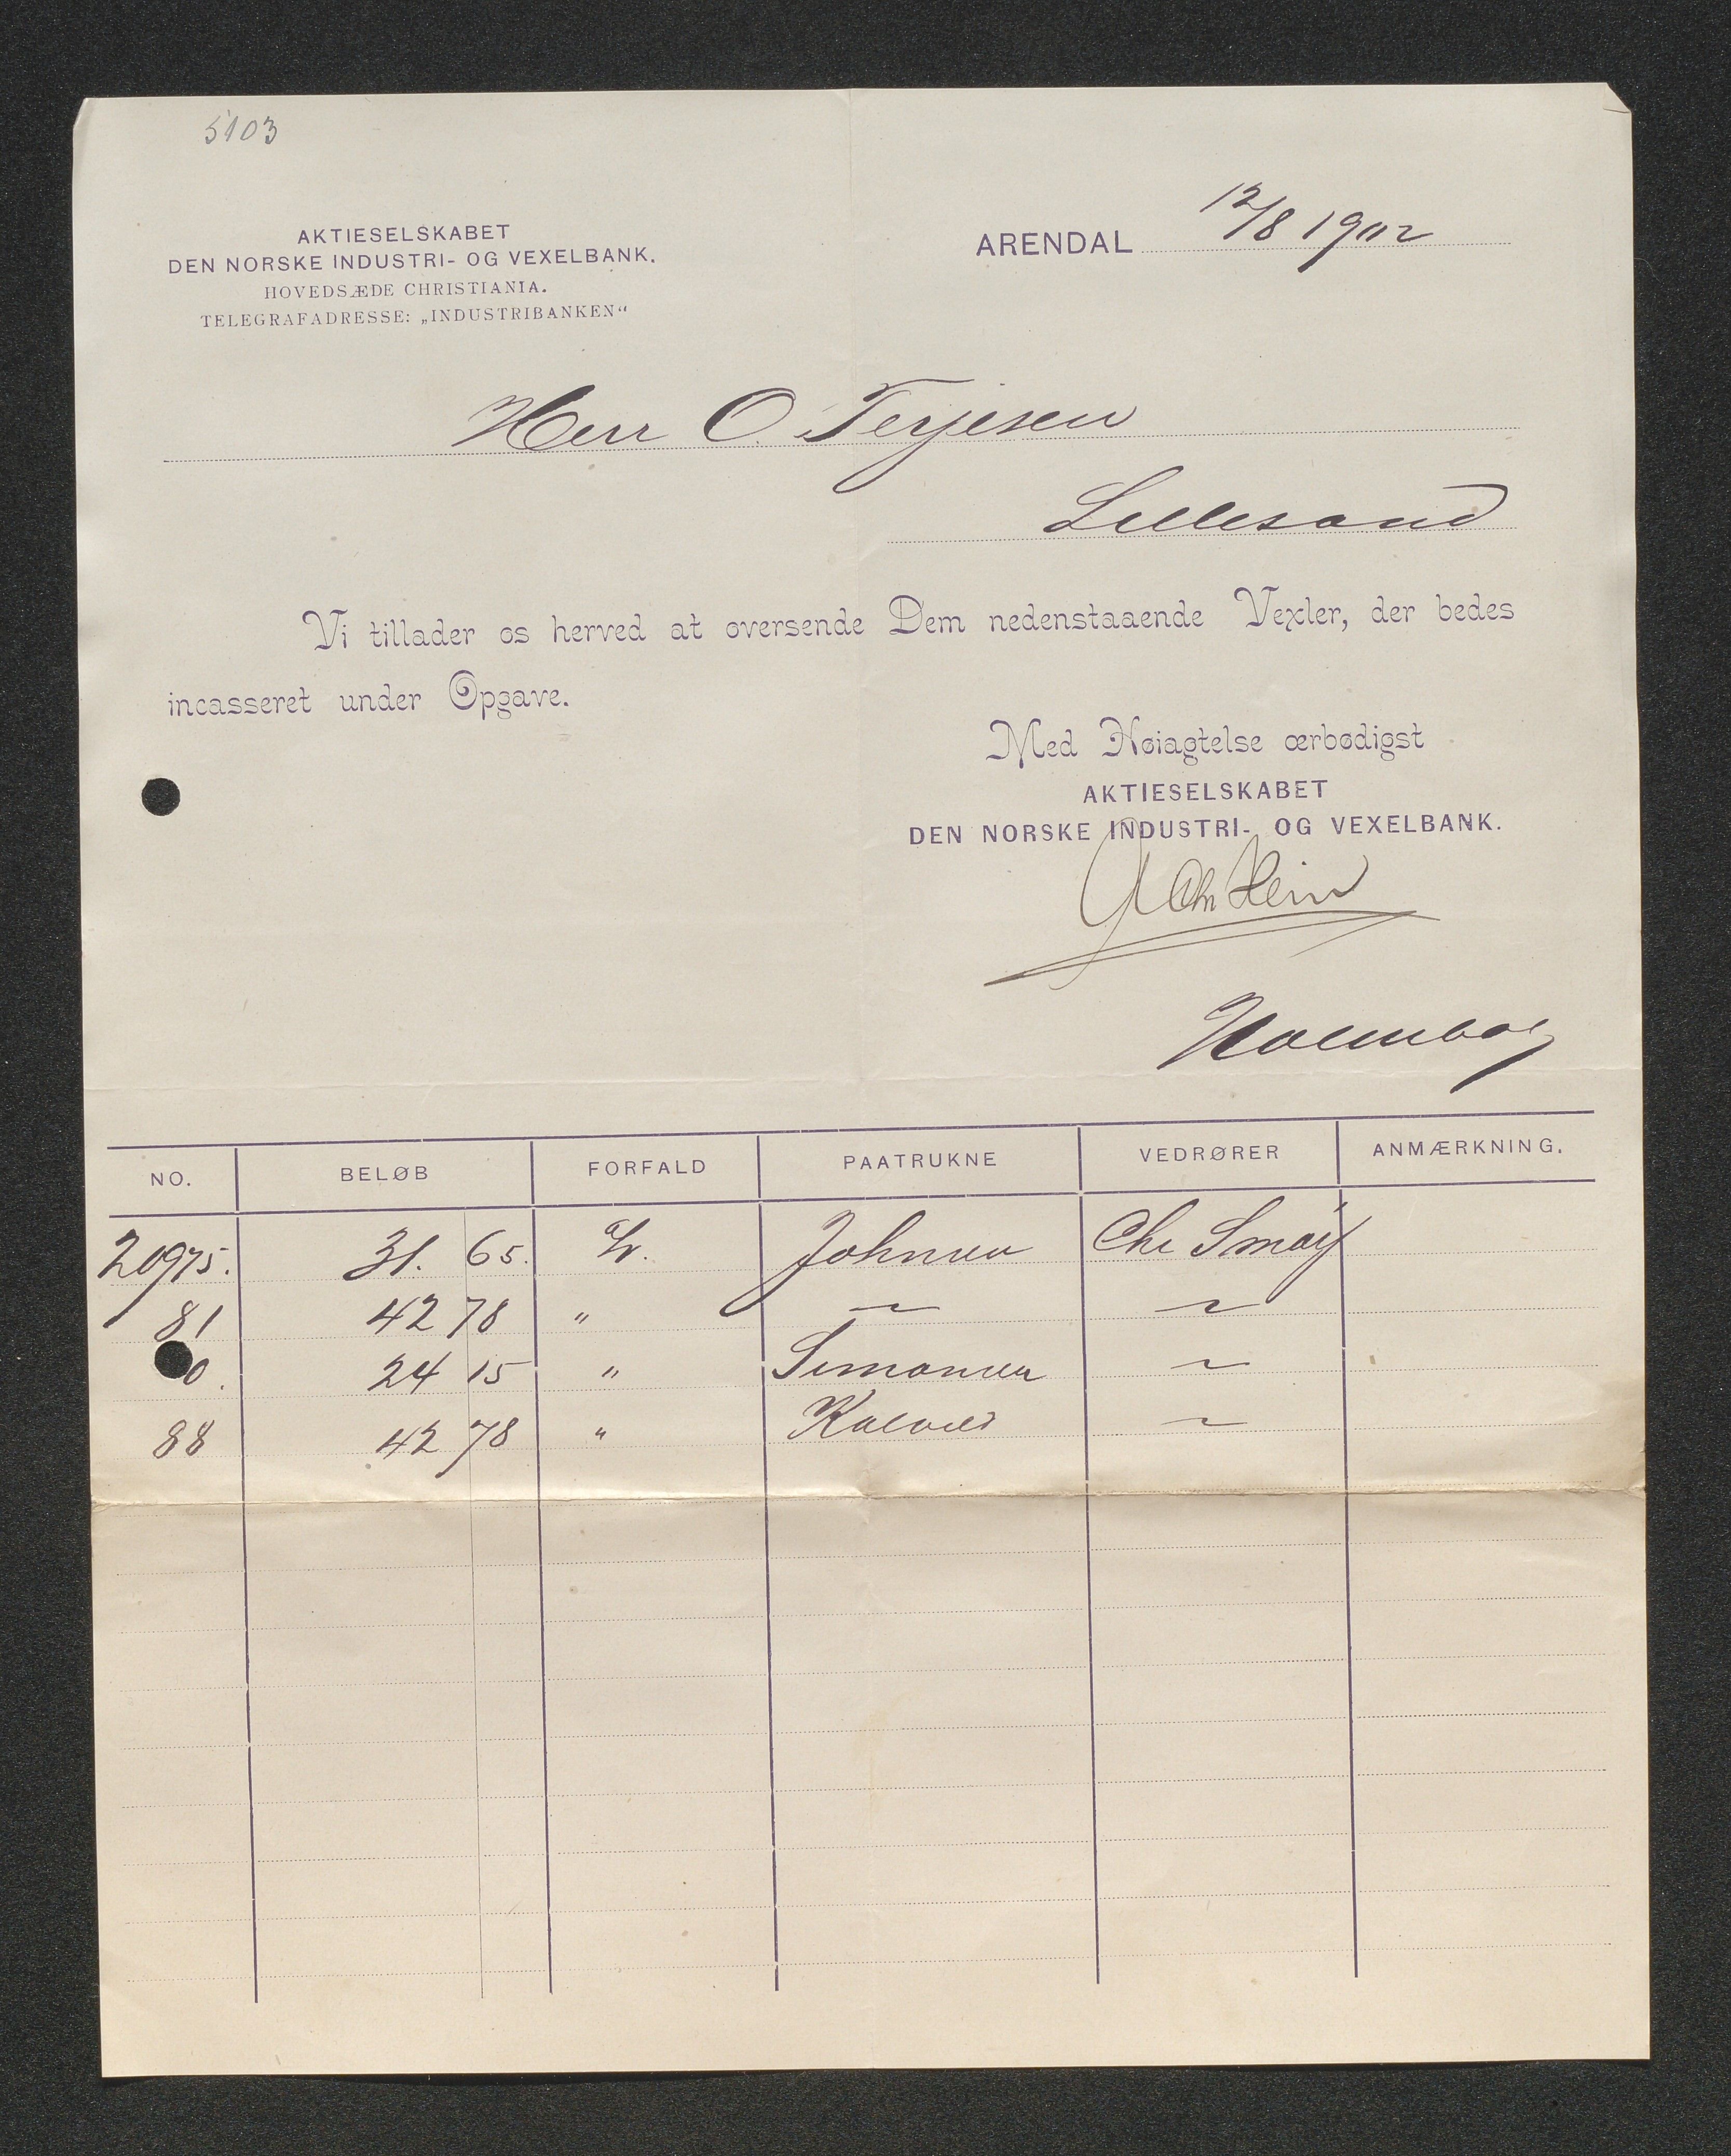 5103
AKTIESELSKABET
DEN NORSKE INDUSTRI- OG VEXELBANK.
HOVEDSÆDE CHRISTIANIA.
TELEGRAFADRESSE: „INDUSTRIBANKEN“
ARENDAL 12/8 1902
Herr O. Terjesen
Lillesand
Vi tillader os herved at oversende Dem nedenstaaende Vexler, der bedes
incasseret under Opgave.
Med Høiagtelse ærbødigst
AKTIESELSKABET
DEN NORSKE INDUSTRI- OG VEXELBANK.
NO. BELØB FORFALD PAATRUKNE VEDRØRER ANMÆRKNING.
20975. 31. 65. Johnsen Chr
81 42 78 " ~ ~
0. 24 15 " Simonsen ~
88 42 78 " ~